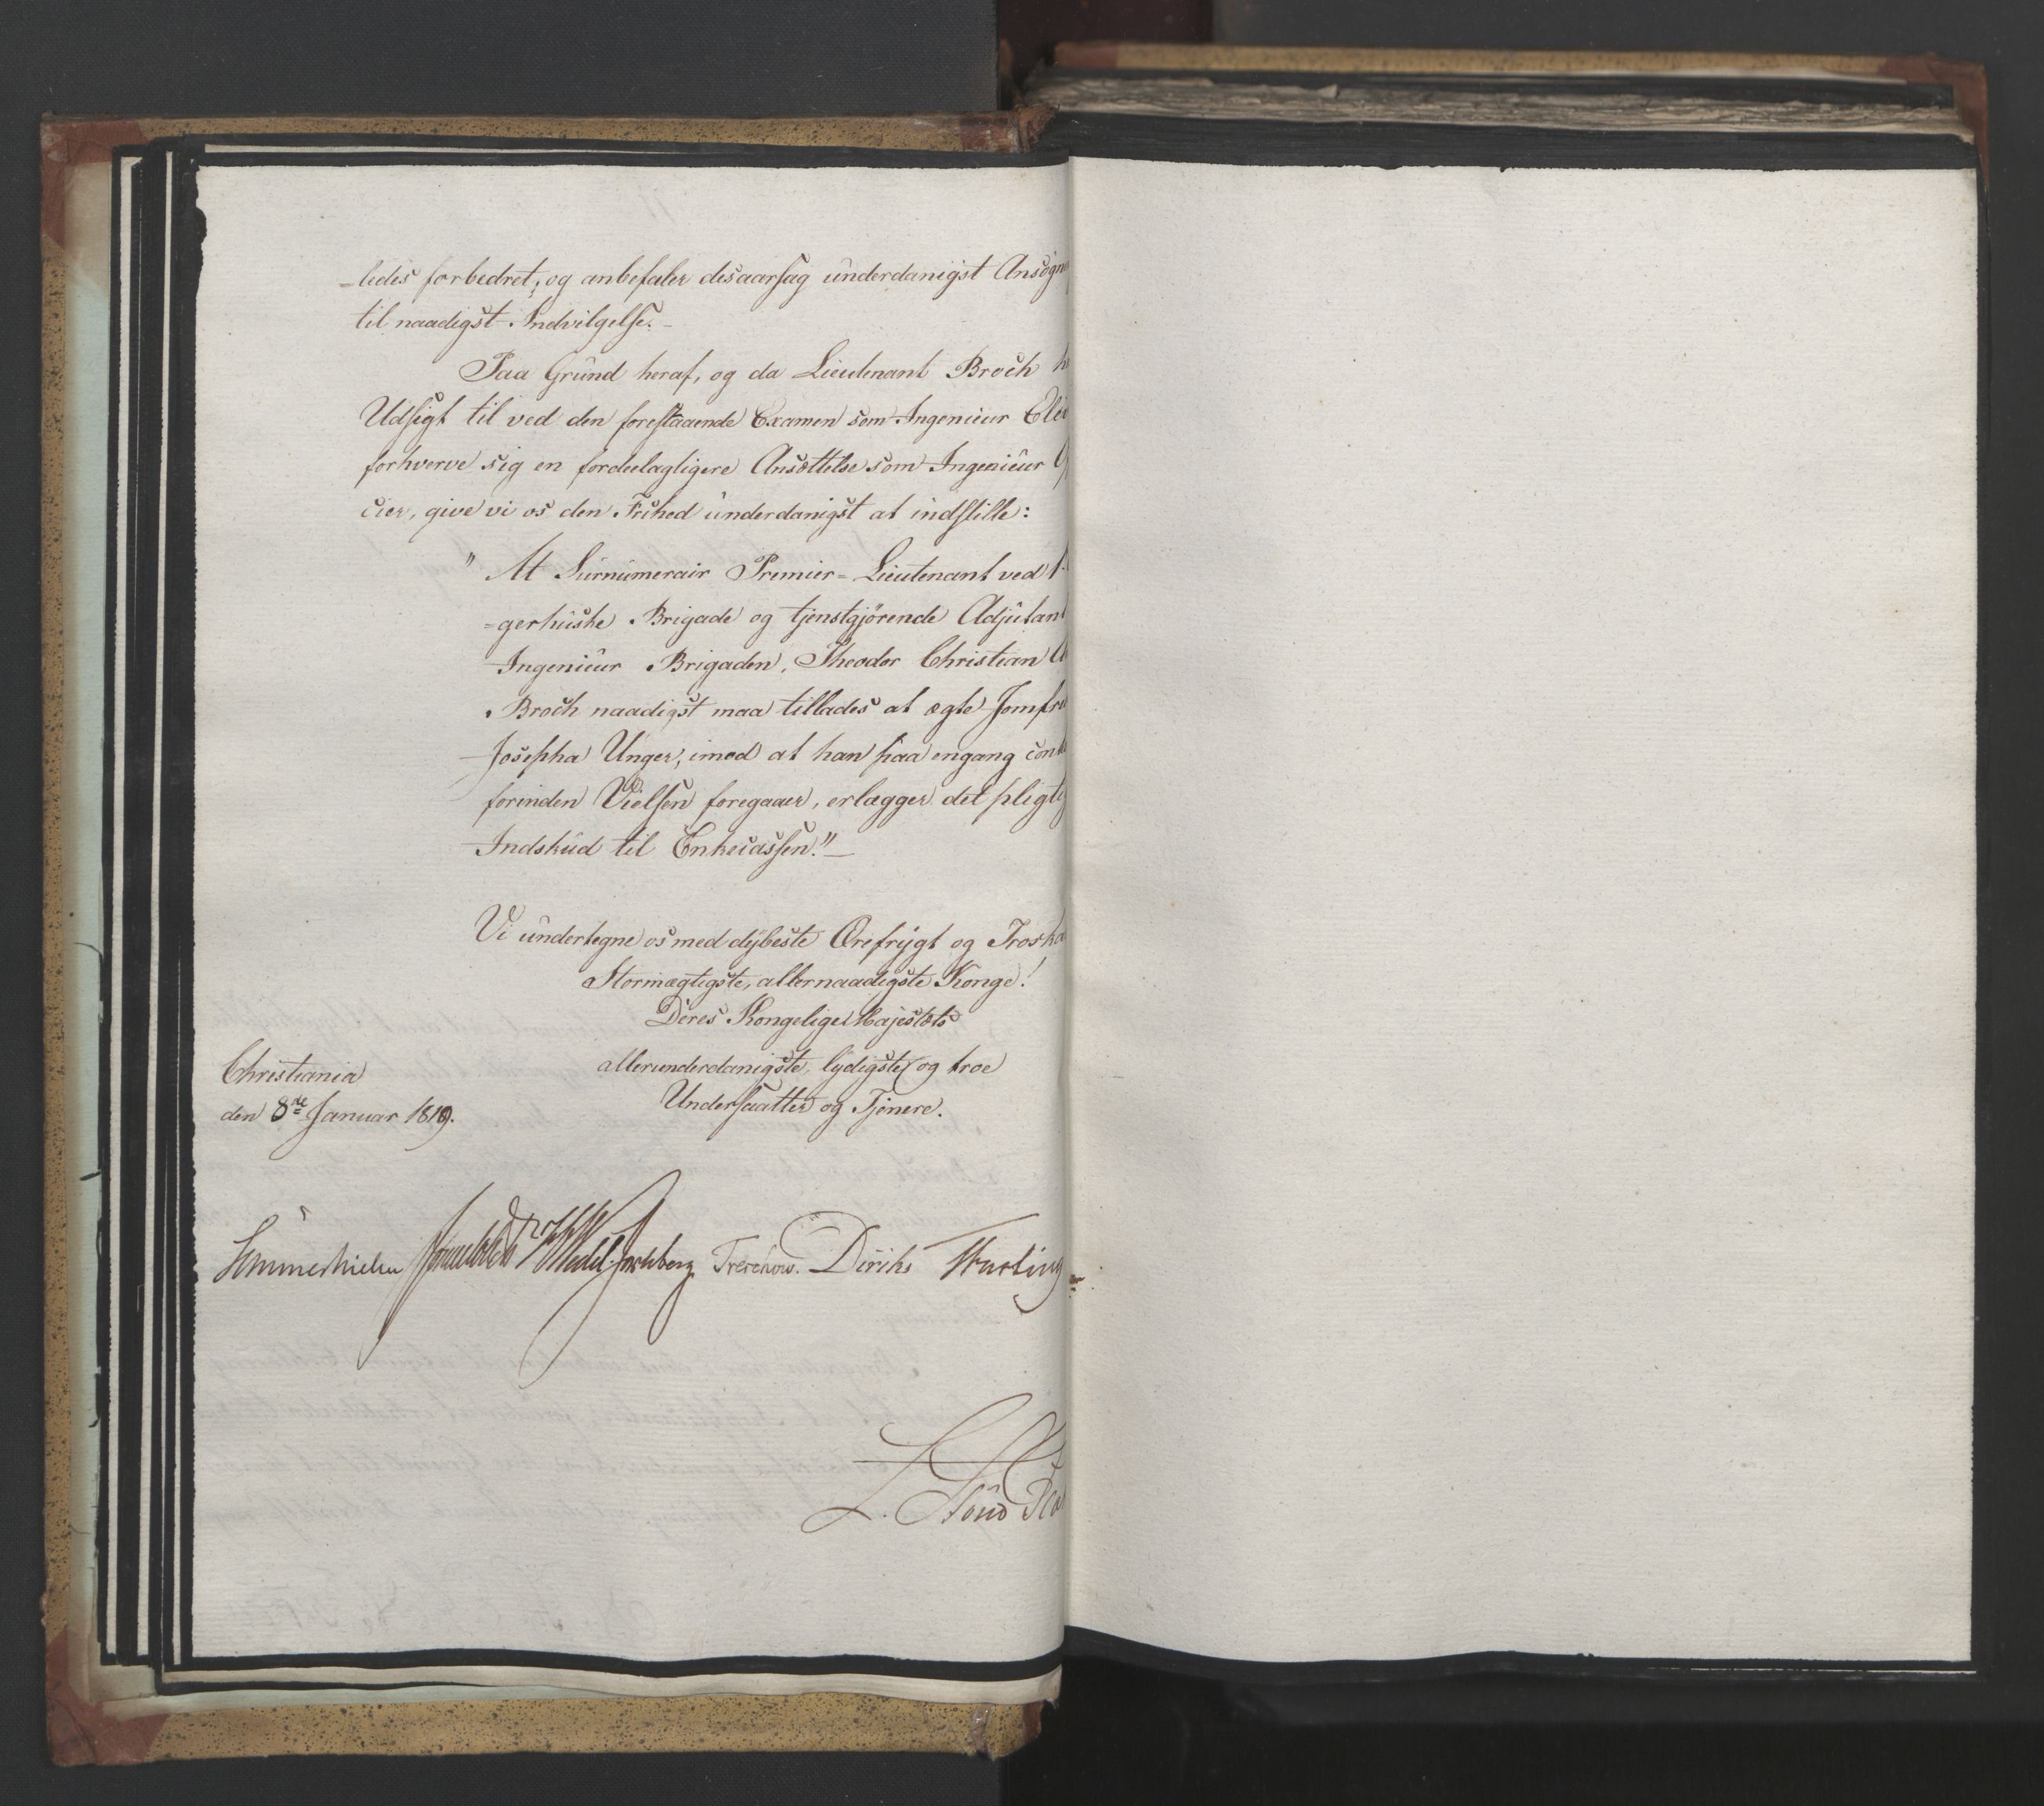 -ledes forbedret; og anbefaler desaarsag underdanigst Ansøgn
til naadigst Indvilgelse. -
Paa Grund heraf, og da Lieutenant Broch
Udsigt til ved den forestaaende Examen som Ingenieur Elev
forhverve sig en fordeelagtigere Ansættelse som Ingenieur
cier, give vi os den Frihed underdanigst at indstille:
" At Surnumerair Premier-Lieutenant ved
=gerhuiske Brigade og tjenstgjørende Adjutant
Ingenieur Brigaden, Theodor Christian
Broch naadigst maa tillades at ægte Jomfru
Josepha Unger, imod at han paa engang
forinden Vielsen foregaaer, erlægger det pligtig
Indskud til Enkecassen." -
Vi undertegne os med dybeste Ærefrygt og Troska
Stormægtigste, allernaadigste Konge!
Deres Kongelige Majestæts
allerunderdanigste, lydigste og troe
Undersaatter og Tjenere.
Christiania
den 8de Januar 1819.
Sommerhielm Wedel Jarlsberg Treschow. Diriks Fasting
L. Stoud Pla